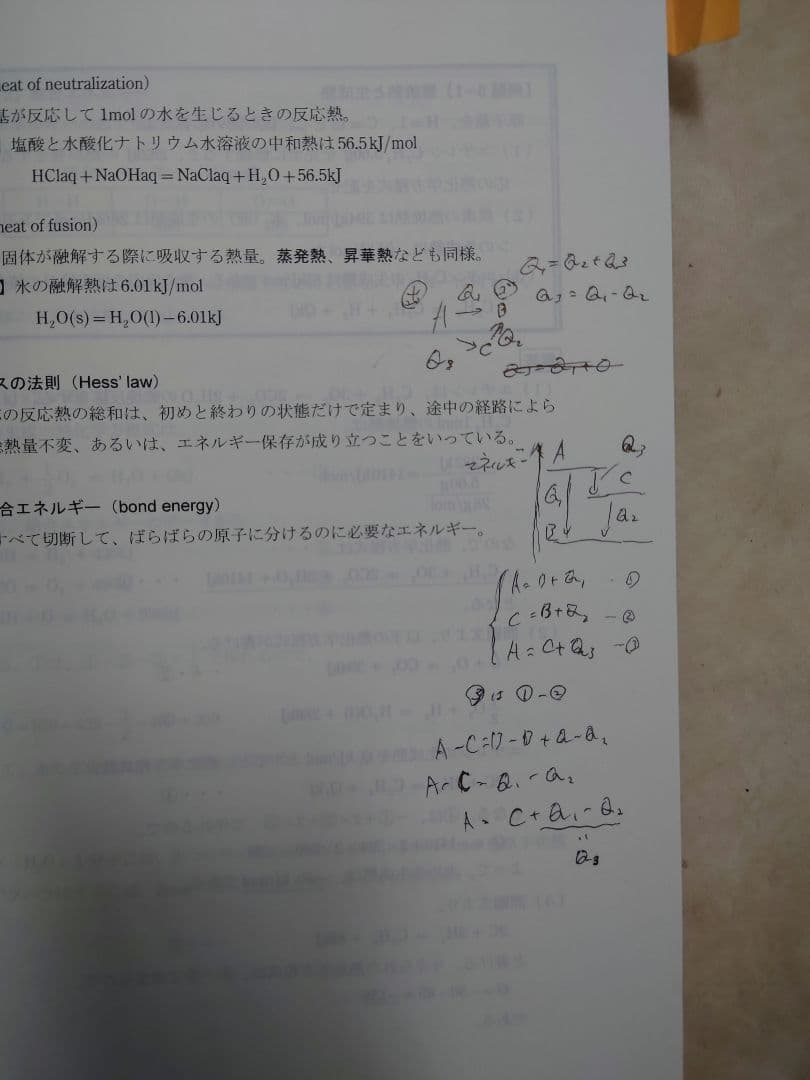 eat of neutralization)
基が反応して1molの水を生じるときの反応熱。
塩酸と水酸化ナトリウム水溶液の中和熱は56.5kJ/mol
HClaq+NaOHaq=NaClaq+H₂O+56.5kJ
heat of fusion)
固体が融解する際に吸収する熱量。蒸発熱、昇華熱なども同様。
】氷の融解熱は6.01kJ/mol
H₂O(s)=H₂O(l)−6.01kJ
スの法則(Hess' law)
の反応熱の総和は、初めと終わりの状態だけで定まり、途中の経路によら
熱量不変、あるいは、エネルギー保存が成り立つことをいっている。
合エネルギー(bond energy)
すべて切断して、ばらばらの原子に分けるのに必要なエネルギー。
Q₁=Q₂+Q₃
Q₃=Q₁-Q₂
A → B
Q₁
Q₃
C
Q₂
エネルギー
A
Q₃
Q₁
C
Q₂
B
A=B+Q₁ ・①
C=B+Q₂ -②
A=C+Q₃ -③
③は①-②
A-C=B-B+Q-Q₂
A-C=Q₁-Q₂
A=C+Q₁-Q₂
Q₃